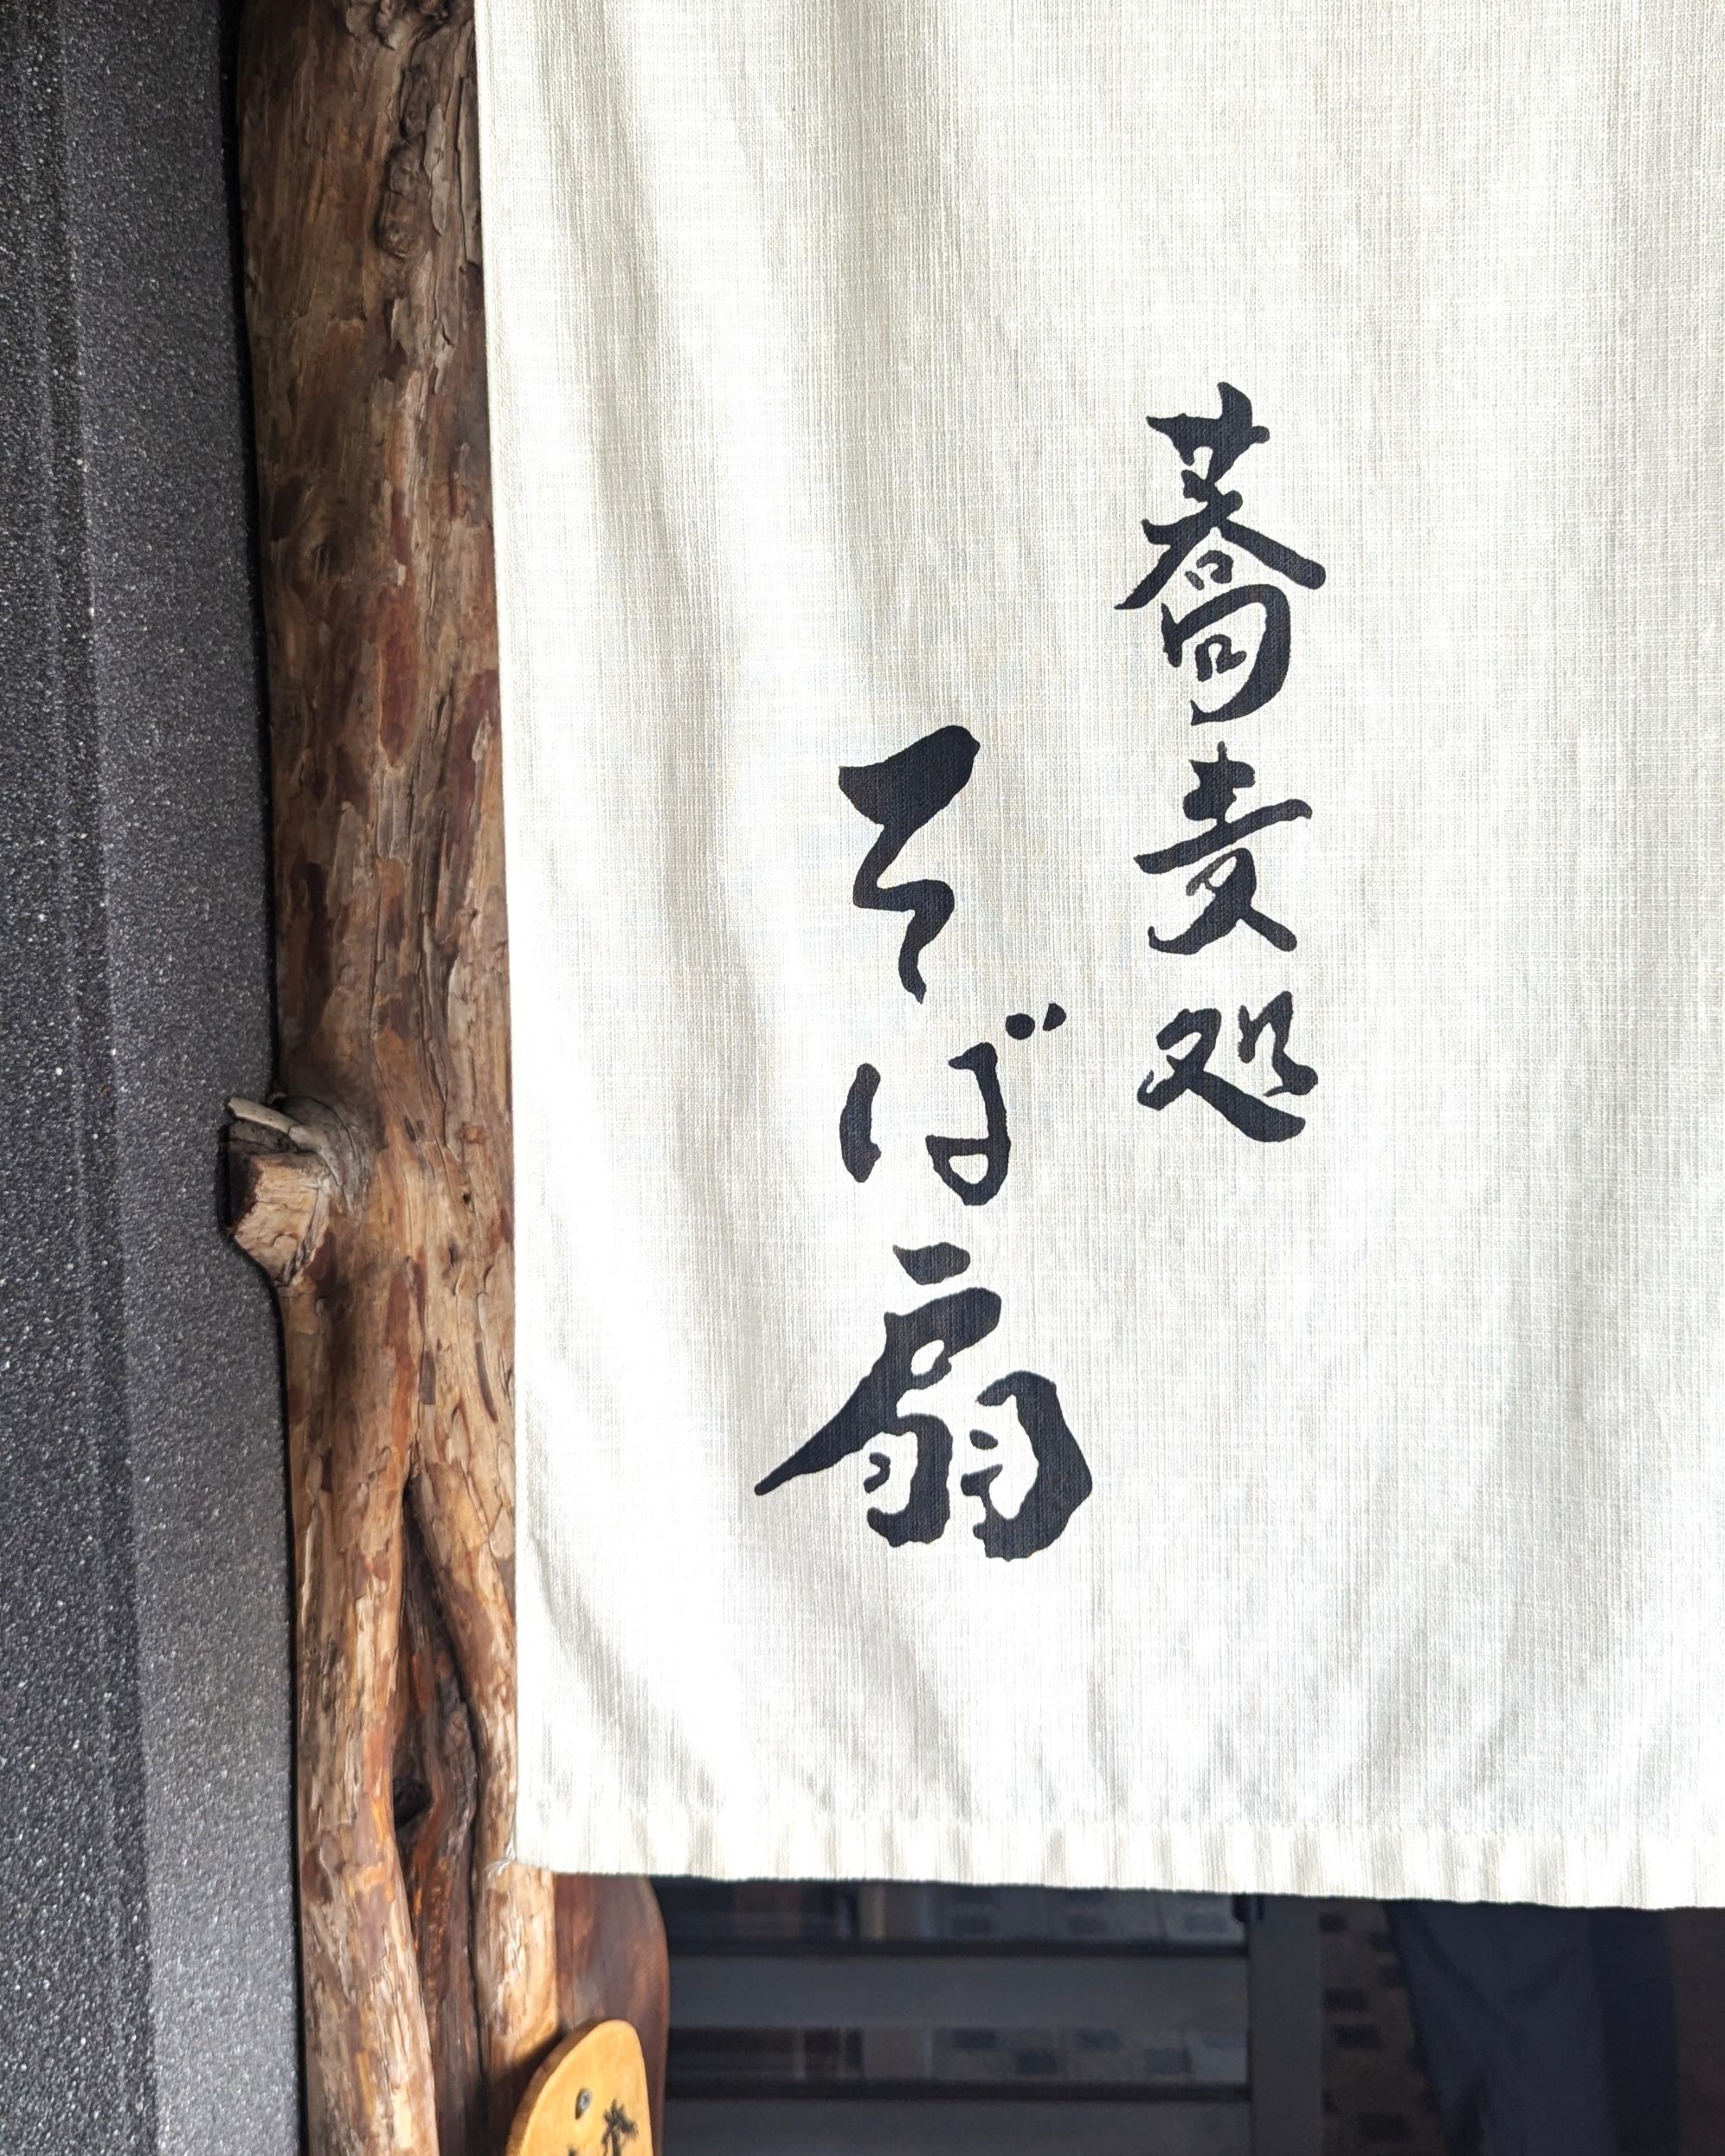 蕎麦処
そば扇